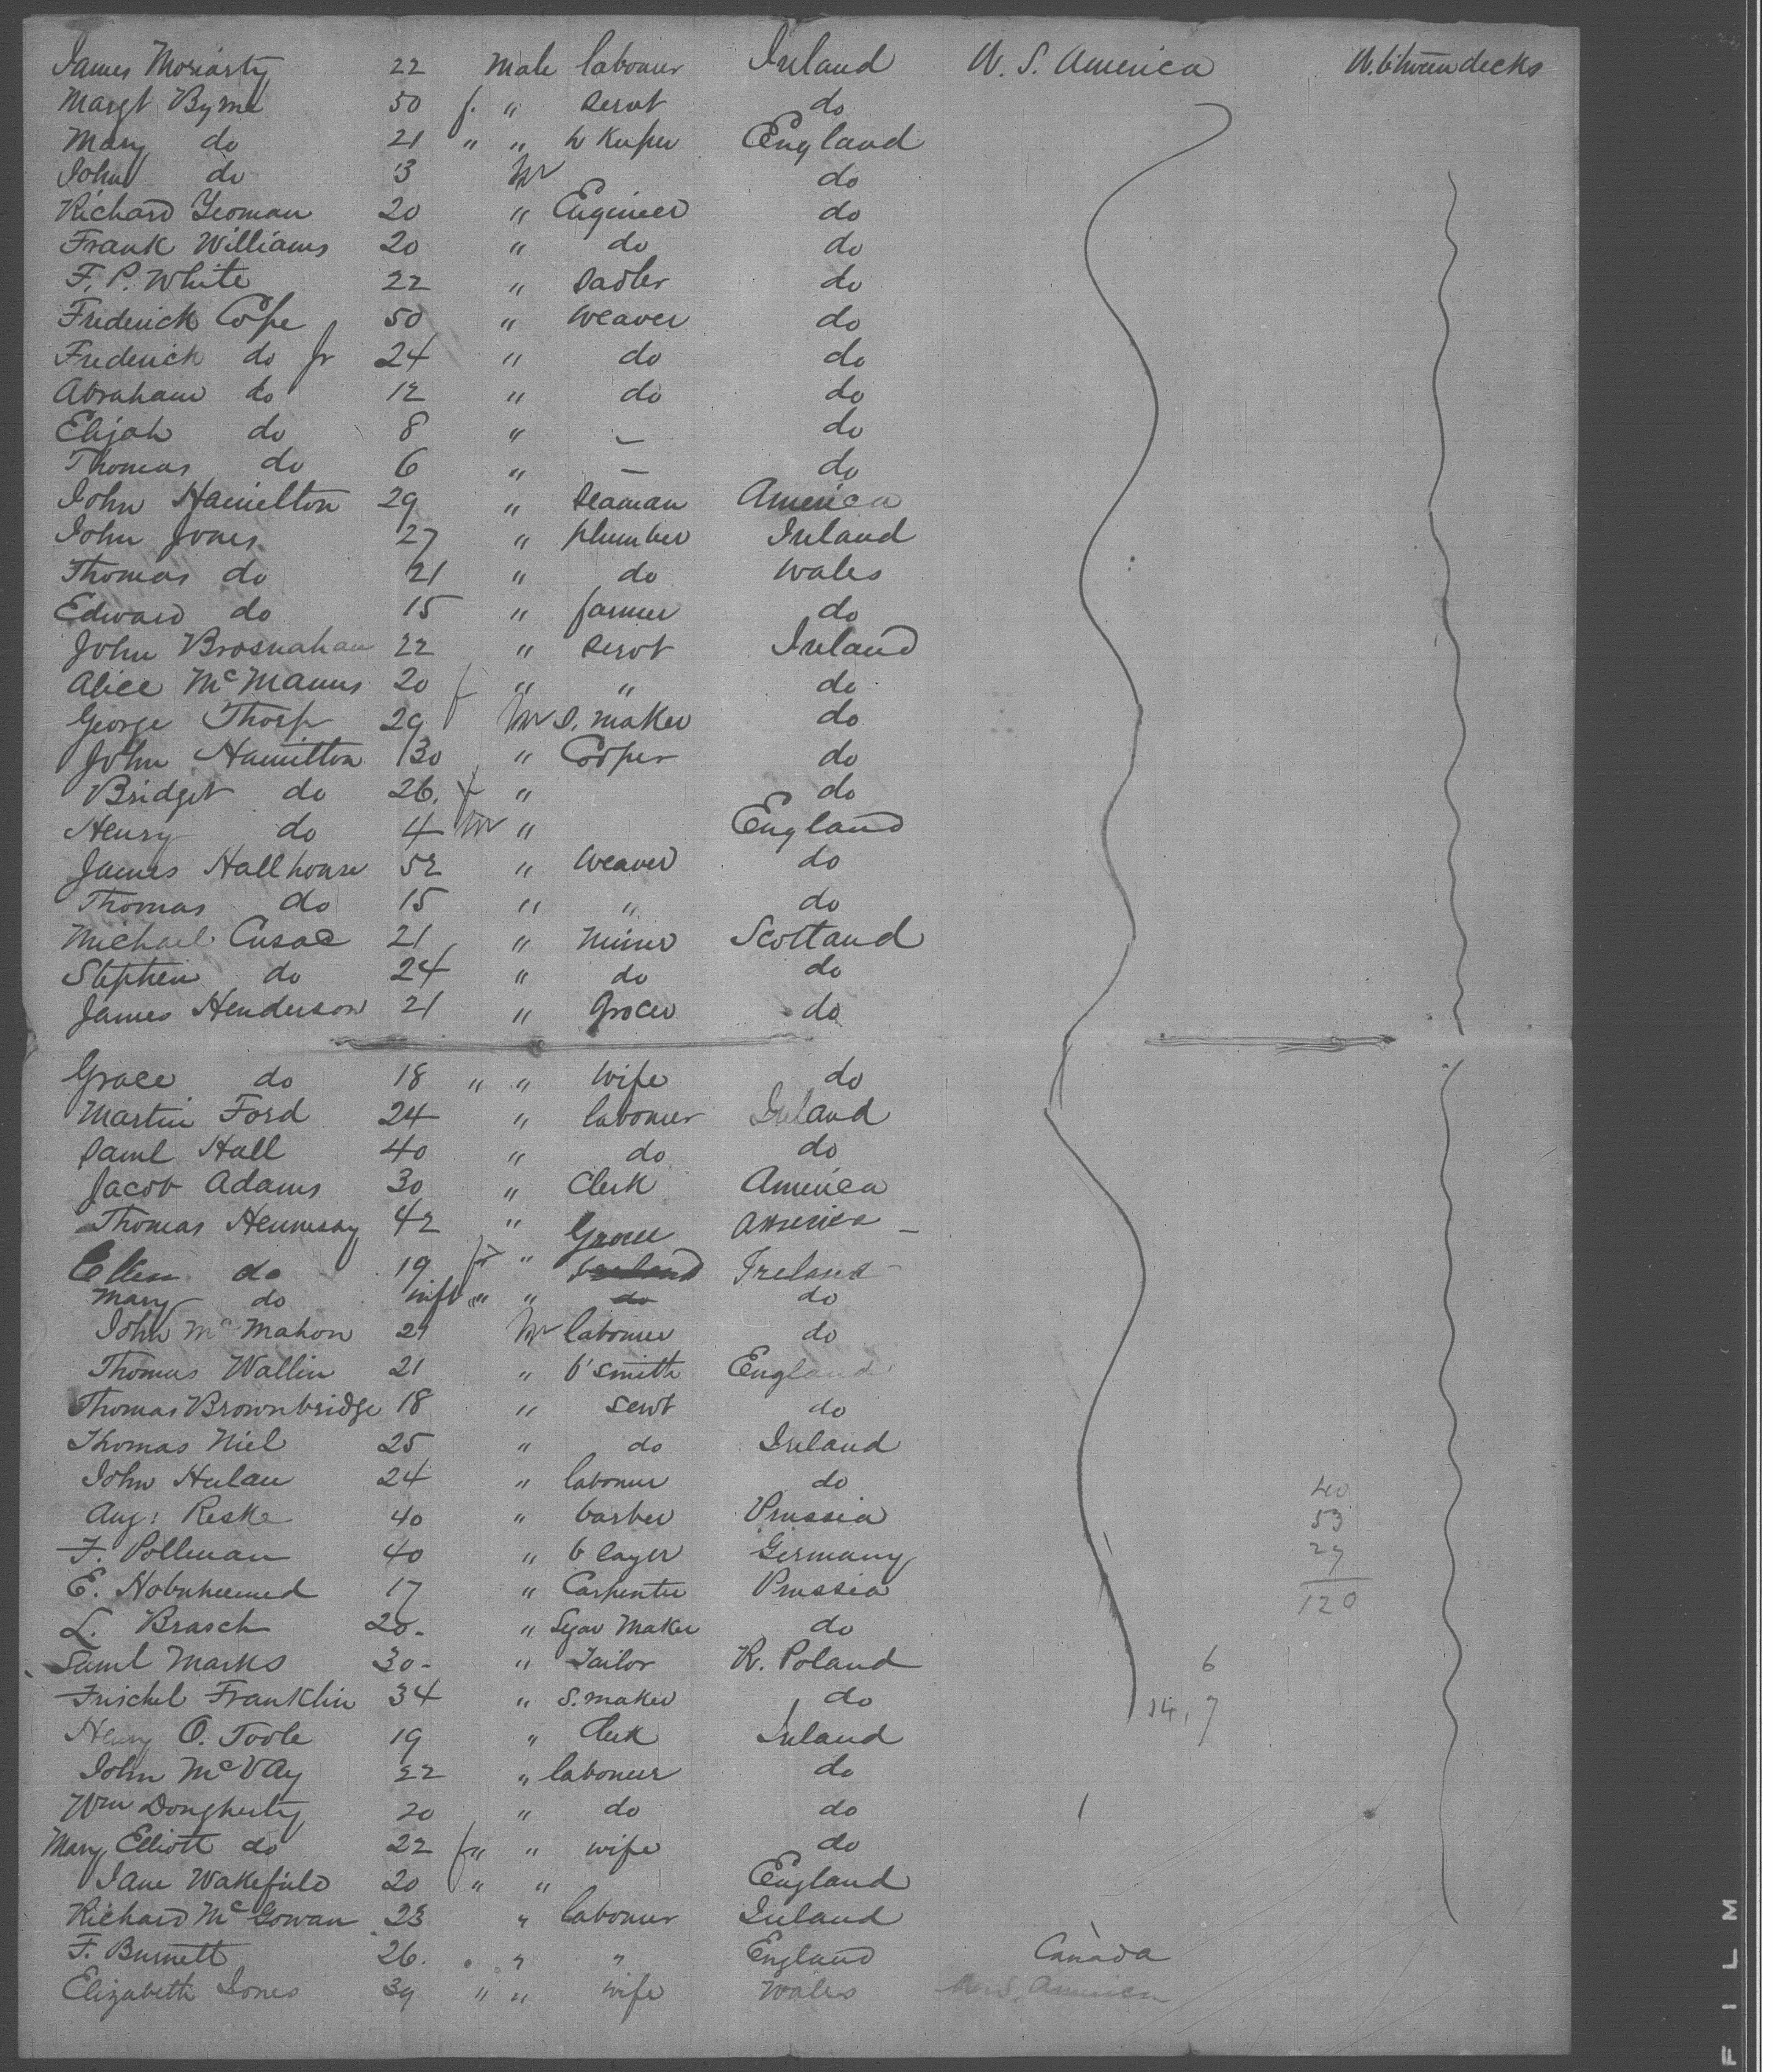 James Moriarty 22 male labourer Ireland U. S. America U. btween decks
Margt Byrne 50 f. " servt do
Mary do 21 " " h Keeper England
John do 3 M do
Richard Yeoman 20 " Engineer do
Frank Williams 20 " do do
F. P. White 22 " Sadler do
Frederick Cope 50 " Weaver do
Frederick do Jr 24 " do do
Abraham do 12 " do do
Elijah do 8 " – do
Thomas do 6 " – do
John Hamilton 29 " Seaman America
John Jones 27 " plumber Ireland
Thomas do 21 " do Wales
Edward do 15 " farmer do
John Brosnahan 22 " Servt Ireland
Alice McManus 20 f " " do
George Thorp 29 M S. maker do
John Hamilton 30 " Cooper do
Bridget do 26. f " do
Henry do 4 M " England
James Hallhouse 52 " Weaver do
Thomas do 15 " " do
Michael Cusac 21 " Miner Scotland
Stephen do 24 " do do
James Henderson 21 " Grocer do
Grace do 18 " " Wife do
Martin Ford 24 " labourer Ireland
Saml Hall 40 " do do
Jacob Adams 30 " Clerk America
Thomas Hennesay 42 " Grocer America –
Ellen do 19 f " Ireland Ireland
Mary do inft " " do do
John McMahon 21 M labourer do
Thomas Wallin 21 " b'smith England
Thomas Brownbridge 18 " Servt do
Thomas Niel 25 " do Ireland
John Hulau 24 " labourer do
Aug: Reske 40 " barber Prussia 40
F. Pollman 40 " b layer Germany 53
E. 17 " Carpenter Prussia 27
L. Brasch 20. " Segar Maker do 120
Saml Marks 30- " Tailor R. Poland 6
Frischel Franklin 34 " S. maker do 14, 7
Henry O. Toole 19 " Clerk Ireland
John McVay 22 " labourer do
Wm Dougherty 20 " do do
Mary Elliott do 22 f " " wife do
Jane Wakefield 20 " " England
Richard McGowan 23 " labourer Ireland
F. Burnett 26. " " England Canada
Elizabeth Jones 39 " " wife Wales U. S. America
FILM